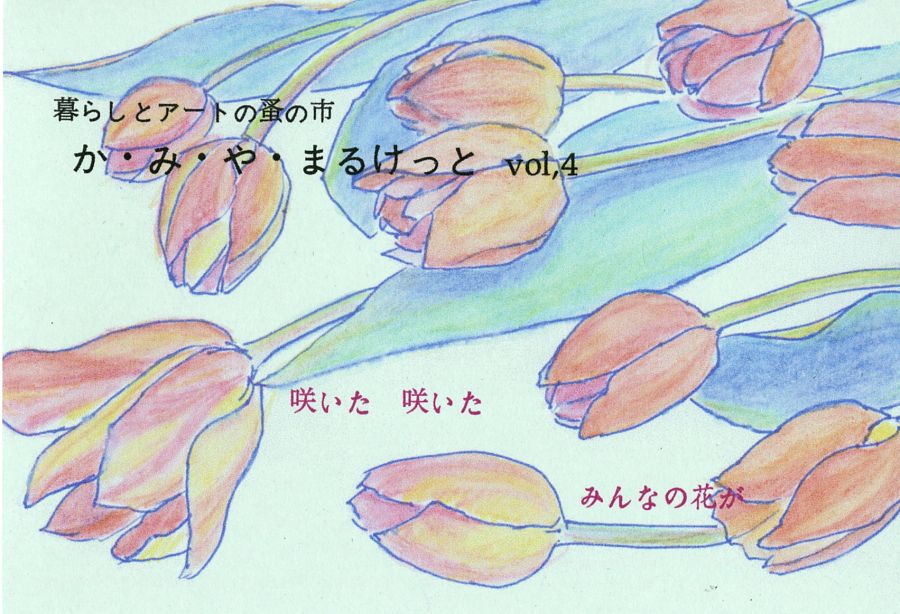 暮らしとアートの蚤の市
か・み・や・まるけっと vol,4
咲いた 咲いた
みんなの花が